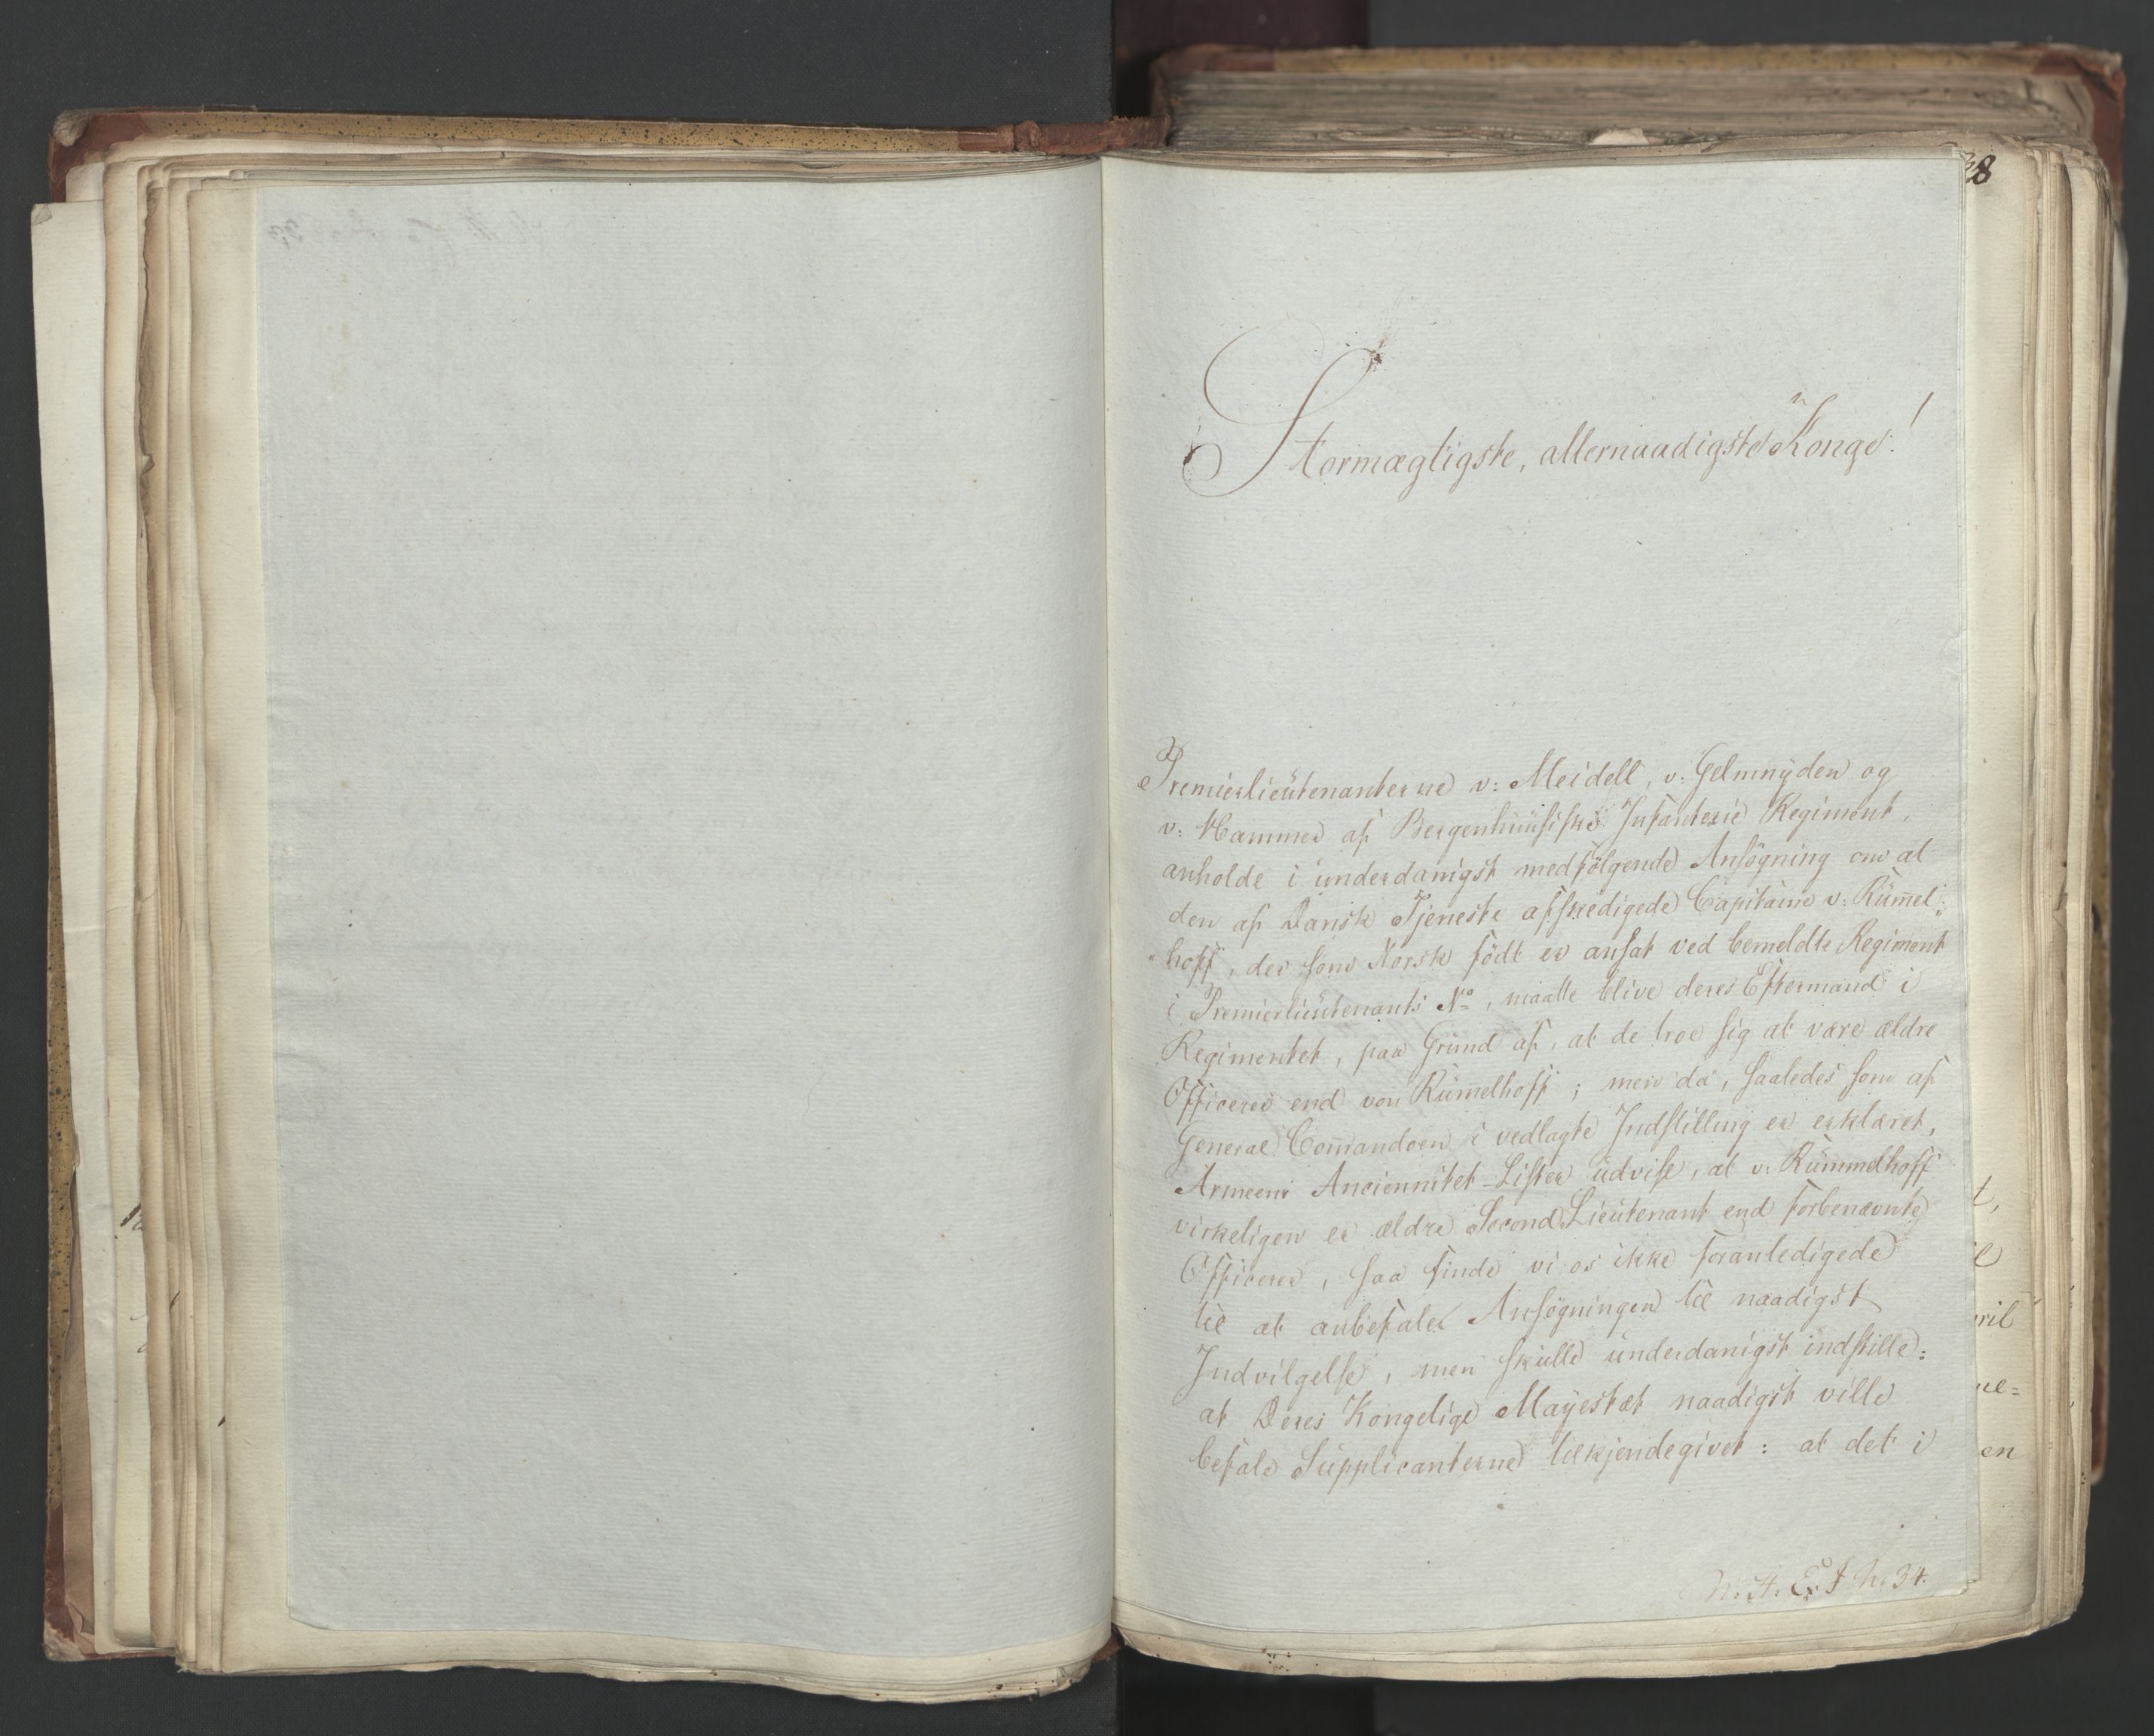 38
Stormægtigste, allernaadigste Konge!
Premierlieutenanterne v: Meidell, v: Gelmuyden og
v: Hammer af Bergenhuusiske Infanterie Regiment,
anholde i underdanigst medfølgende Ansøgning om at
den af Dansk Tjeneste afskedigede Capitaine v: Rum̄el-
hoff, der som Norsk født er ansat ved bemeldte Regiment
i Premierlieutenants No, maatte blive deres Eftermand i
Regimentet, paa Grund af, at de troe sig at være ældre
Officerer end von Rum̄elhoff; men da, saaledes som af
General Com̄andoen i vedlagte Indstilling er erklæret,
Armeens Anciennitet-Lister udvise, at v: Rummelhoff
virkeligen er ældre Second Lieutenant end forbenævnte
Officerer, saa finde vi os ikke foranledigede
til at anbefale Ansøgningen til naadigst
Indvilgelse, men skulle underdanigst indstille:
at Deres Kongelige Mayestæt naadigst ville
befale Supplicanterne tilkjendegivet: at det i
34.
t,
ril
ne=
en